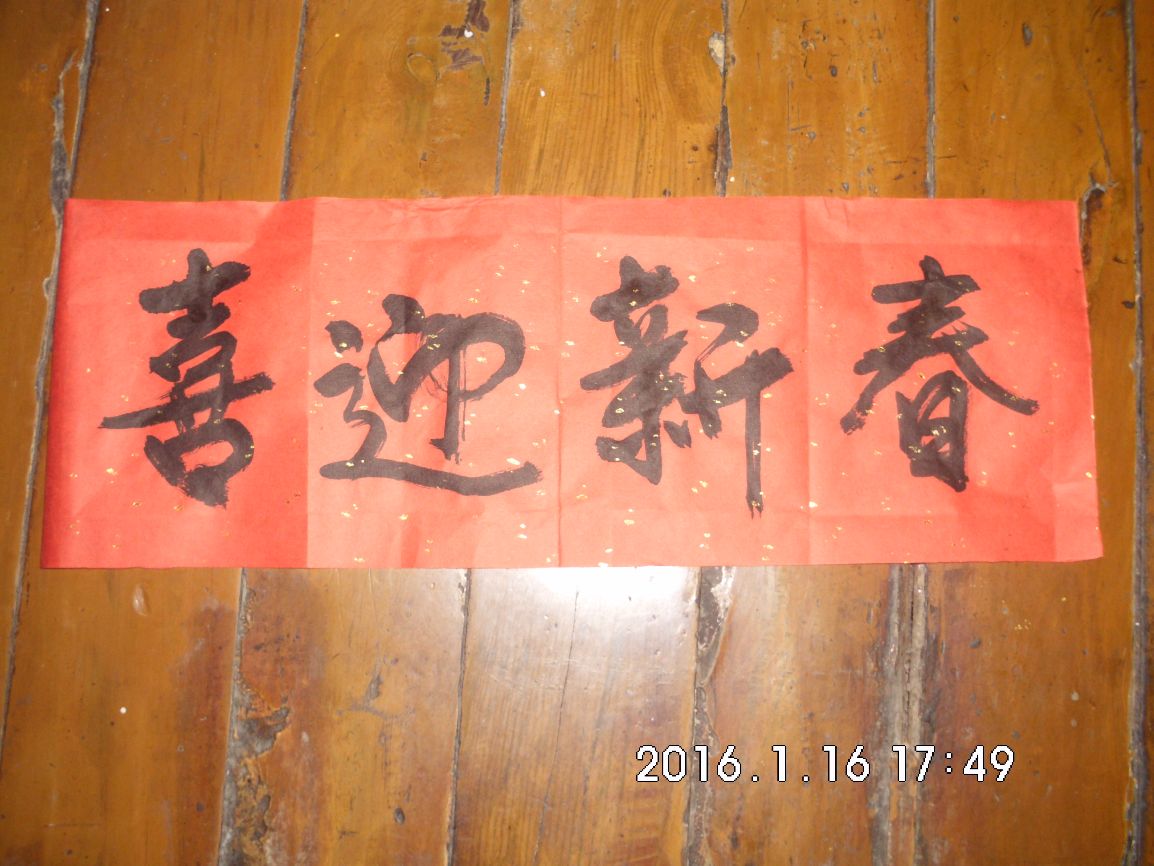 喜迎新春
2016.1.16 17:49